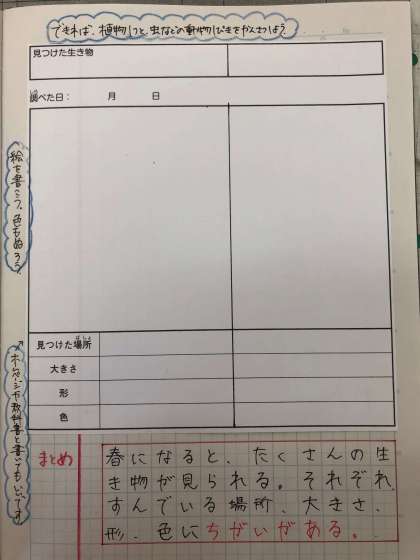 できれば、植物1つと、虫などの動物1ぴきをかんさつしよう。
見つけた生き物
調べた日： 月 日
絵を書こう。色もぬろう。
見つけた場所
大きさ
形
色
↗ホームページや教科書を書いてもいいです
まとめ
春になると、たくさんの生
き物が見られる。それぞれ、
すんでいる場所、大きさ、
形、色にちがいがある。